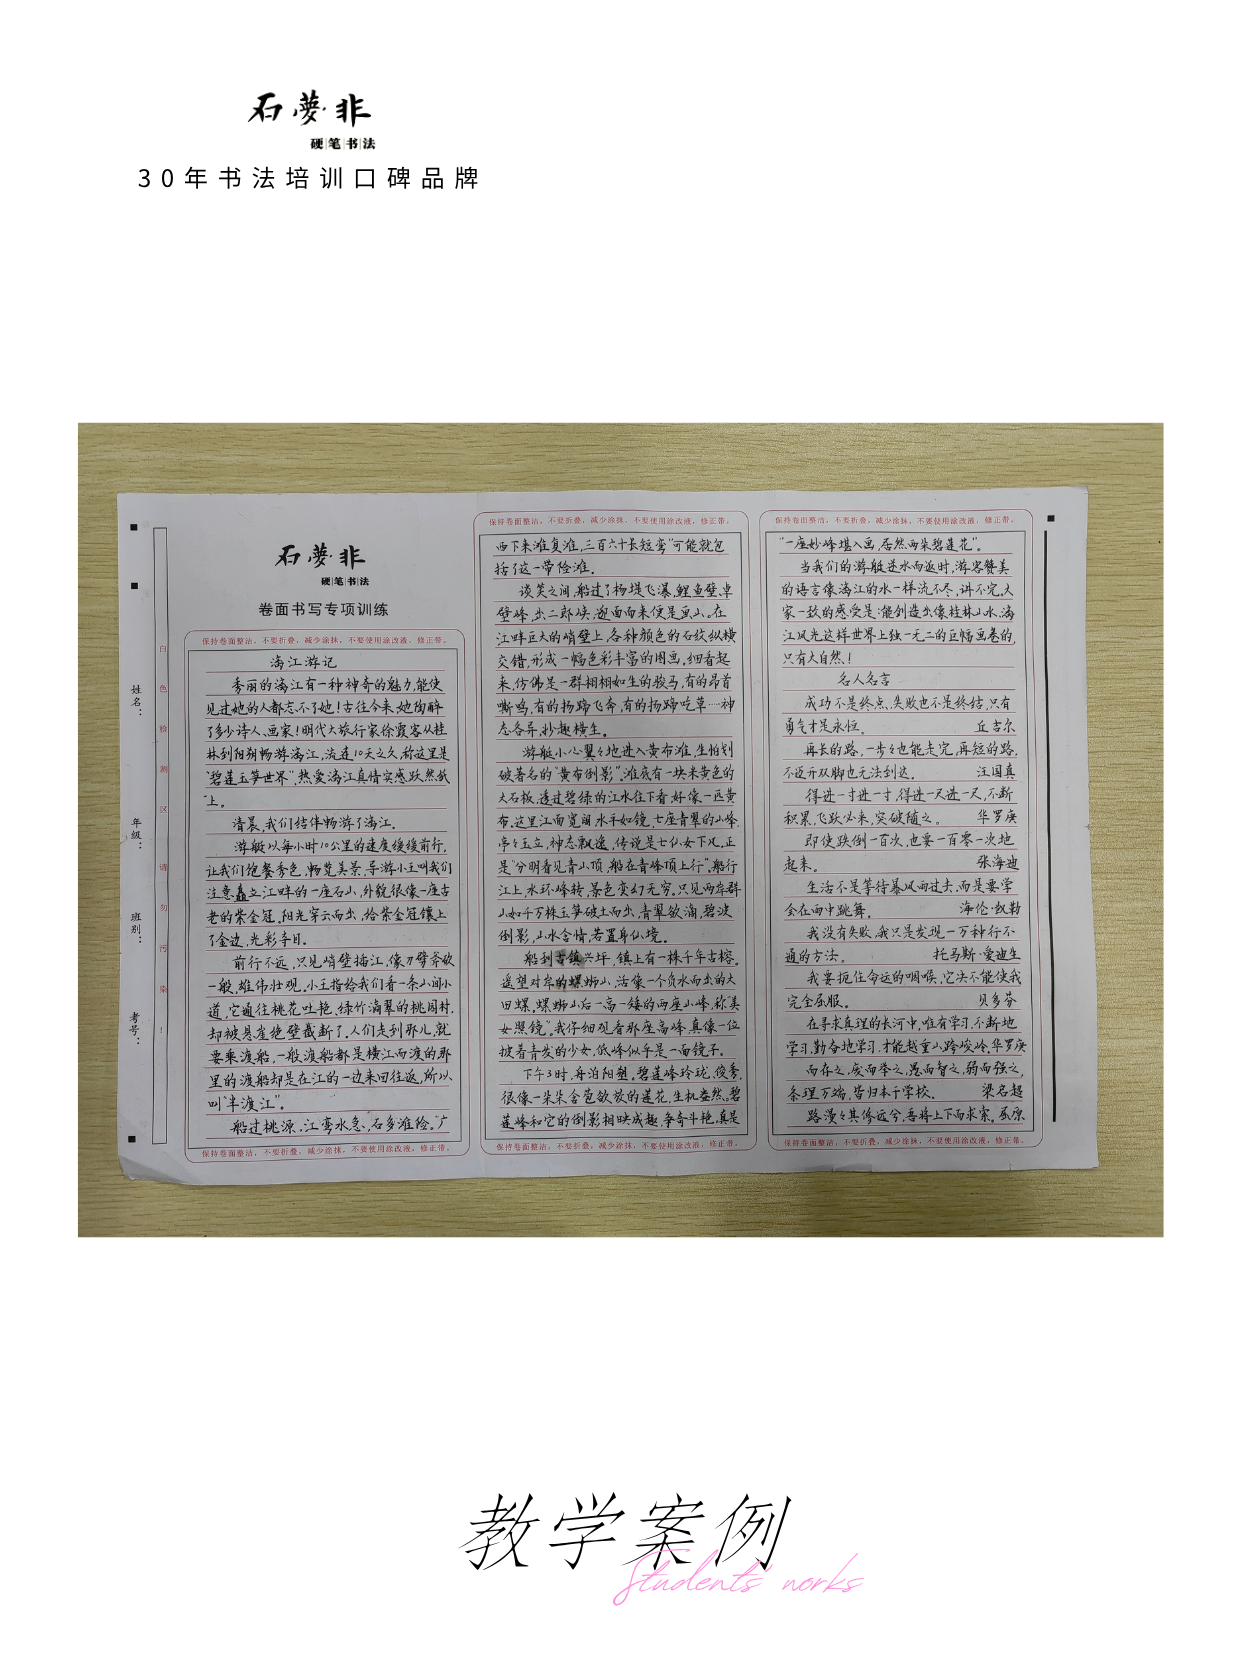 石梦非
硬笔书法
30年书法培训口碑品牌
石梦非
硬笔书法
卷面书写专项训练
姓名：
年级：
班别：
考号：
白色检测区请勿污染！
保持卷面整洁，不要折叠，减少涂抹，不要使用涂改液，修正带。
漓江游记
秀丽的漓江有一种神奇的魅力，能使
见过她的人都忘不了她！古往今来，她陶醉
了多少诗人、画家！明代大旅行家徐霞客从桂
林到阳朔畅游漓江，流连10天之久，称这里是
“碧莲玉笋世界”，热爱漓江真情实感跃然纸
上。
清晨，我们结伴畅游了漓江。
游艇以每小时10公里的速度缓缓前行，
让我们饱餐秀色，畅览美景，导游小王叫我们
注意矗立江畔的一座石山，外貌很像一座古
老的紫金冠，阳光穿云而出，给紫金冠镶上
了金边，光彩夺目。
前行不远，只见峭壁插江，像刀劈斧砍
一般，雄伟壮观。小王指给我们看一条山间小
道，它通往桃花吐艳，绿竹滴翠的桃园村，
却被悬崖绝壁截断了。人们走到那儿，就
要乘渡船，一般渡船都是横江而渡的，那
里的渡船却是在江的一边来回往返，所以
叫“半渡江”。
船过桃源，江弯水急，石多滩险。“广
保持卷面整洁，不要折叠，减少涂抹，不要使用涂改液，修正带。
保持卷面整洁，不要折叠，减少涂抹，不要使用涂改液，修正带。
西下来滩复滩，三百六十长短弯”可能就包
括了这一带险滩。
谈笑之间，船过了杨堤飞瀑，鲤鱼壁，卓
壁峰，出二郎峡，迎面而来便是画山。在
江畔巨大的峭壁上，各种颜色的石纹纵横
交错，形成一幅色彩丰富的图画。细看起
来，仿佛是一群栩栩如生的骏马，有的昂首
嘶鸣，有的扬蹄飞奔，有的扬蹄吃草……神
态各异，妙趣横生。
游艇小心翼々地进入黄布滩，生怕划
破著名的“黄布倒影”。滩底有一块米黄色的
大石板，透过碧绿的江水往下看，好像一匹黄
布。这里江面宽阔，水平如镜，七座青翠的山峰，
亭々玉立，神态飘逸，传说是七仙女下凡。正
是“分明看见青山顶，船在青峰顶上行”。船行
江上，水环峰转，景色变幻无穷。只见两岸群
山如千万株玉笋破土而出，青翠欲滴，碧波
倒影，山水含情，若置身仙境。
船到古镇兴坪，镇上有一株千年古榕。
遥望对岸的螺蛳山，活像一个负水而出的大
田螺，螺蛳山后一高一矮的两座山峰，称“美
女照镜”。我仔细观看那座高峰，真像一位
披着青发的少女，低峰似乎是一面镜子。
下午3时，舟泊阳朔。碧莲峰玲珑，俊秀，
很像一朵朵含苞欲放的莲花，生机盎然。碧
莲峰和它的倒影相映成趣，争奇斗艳，真是
保持卷面整洁，不要折叠，减少涂抹，不要使用涂改液，修正带。
保持卷面整洁，不要折叠，减少涂抹，不要使用涂改液，修正带。
“一座妙峰堪入画，居然两朵碧莲花”。
当我们的游艇逆水而返时，游客赞美
的语言像漓江的水一样流不尽，讲不完，大
家一致的感受是：能创造出像桂林山水，漓
江风光这样世界上独一无二的巨幅画卷的，
只有大自然！
名人名言
成功不是终点，失败也不是终结，只有
勇气才是永恒。 丘吉尔
再长的路，一步々也能走完，再短的路，
不迈开双脚也无法到达。 汪国真
得进一寸进一寸，得进一尺进一尺，不断
积累，飞跃必来，突破随之。 华罗庚
即使跌倒一百次，也要一百零一次地
起来。 张海迪
生活不是等待暴风雨过去，而是要学
会在雨中跳舞。 海伦·凯勒
我没有失败，我只是发现一万种行不
通的方法。 托马斯·爱迪生
我要扼住命运的咽喉，它决不能使我
完全屈服。 贝多芬
在寻求真理的长河中，唯有学习，不断地
学习，勤奋地学习，才能越重山跨峻岭。华罗庚
而存之，废而举之，愚而智之，弱而强之，
条理万端，皆归本于学校。 梁启超
路漫々其修远兮，吾将上下而求索。屈原
保持卷面整洁，不要折叠，减少涂抹，不要使用涂改液，修正带。
教学案例
Students' works